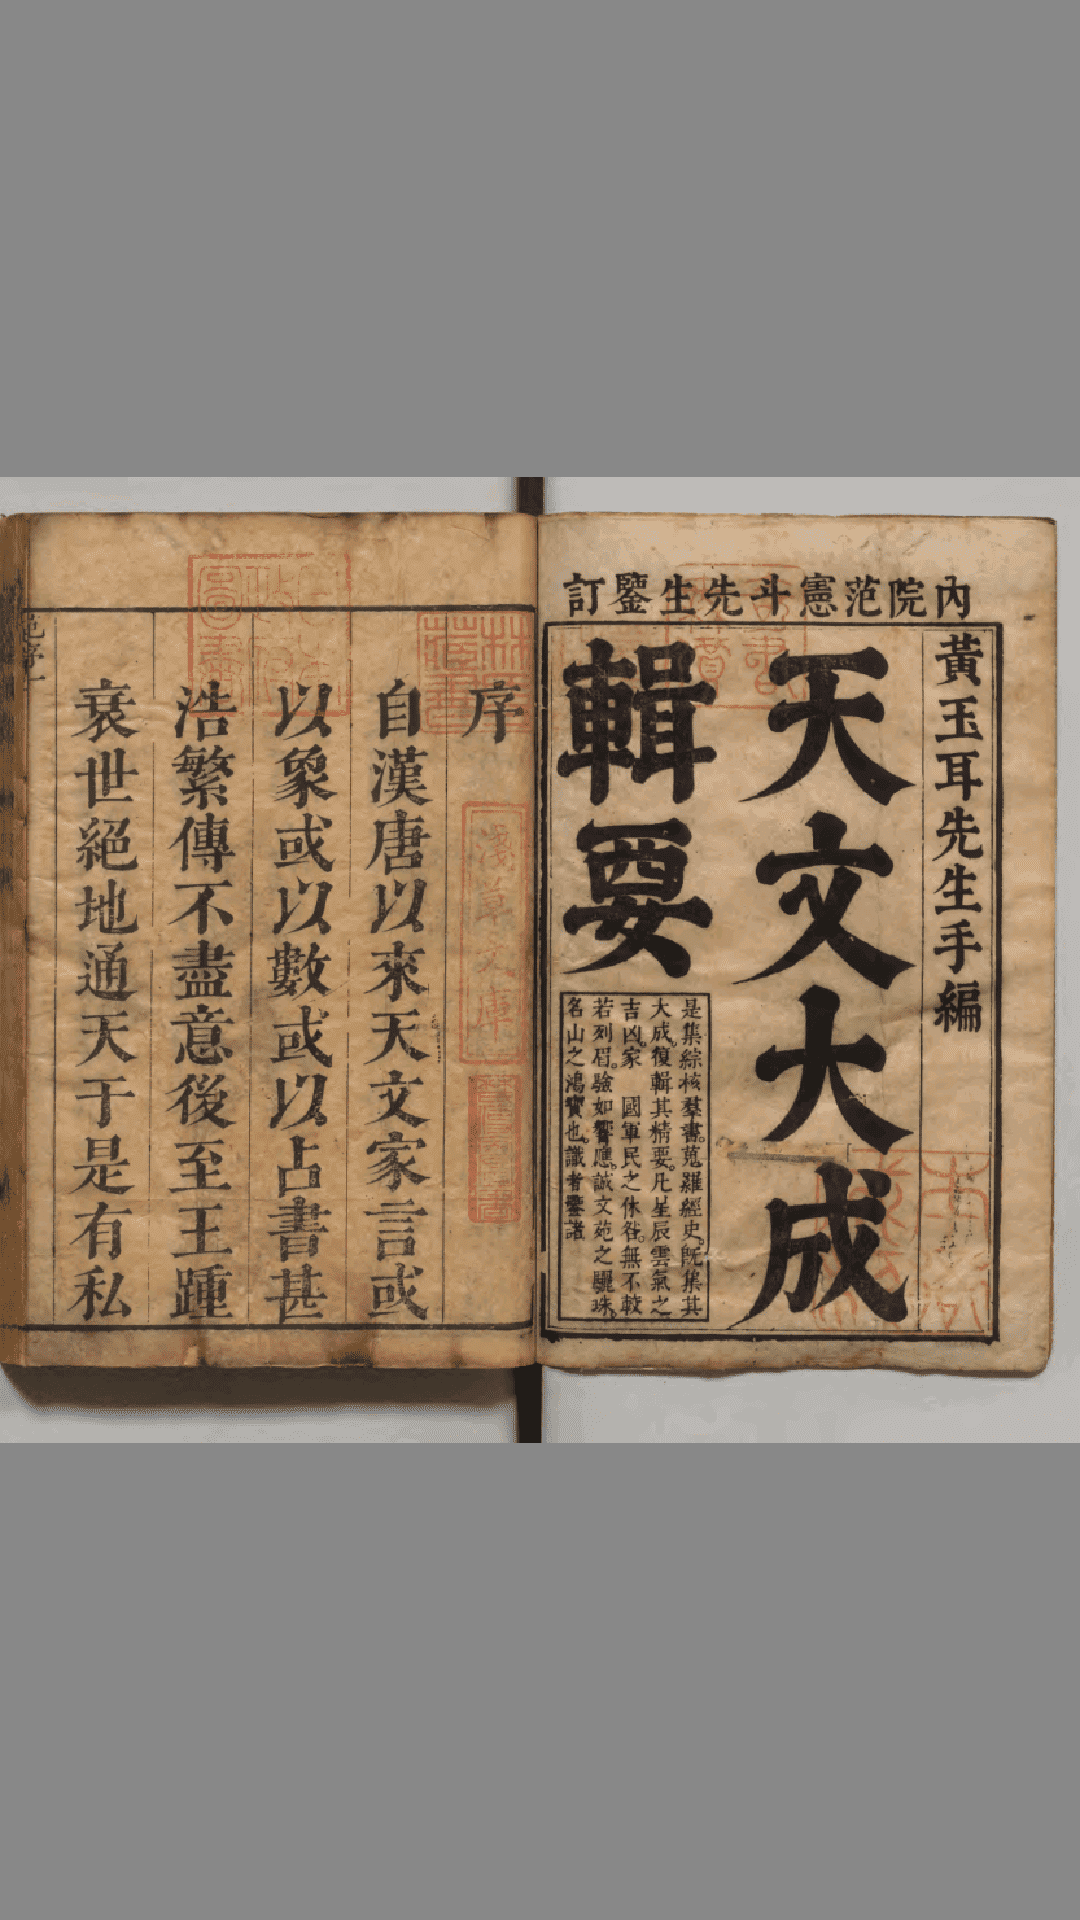 內院范憲斗先生鑒訂
黃玉耳先生手編
天文大成
輯要
是集綜核羣書。蒐羅經史。旣集其
大成。復輯其精要。凡星辰雲氣之
吉凶。家 國軍民之休咎。無不較
若列眉。驗如響應。誠文苑之驪珠。
名山之鴻寶也。識者鑒諸
序
自漢唐以來天文家言或
以象或以數或以占書甚
浩繁傳不盡意後至王踵
衰世絕地通天于是有私
淺草文庫
林氏藏書